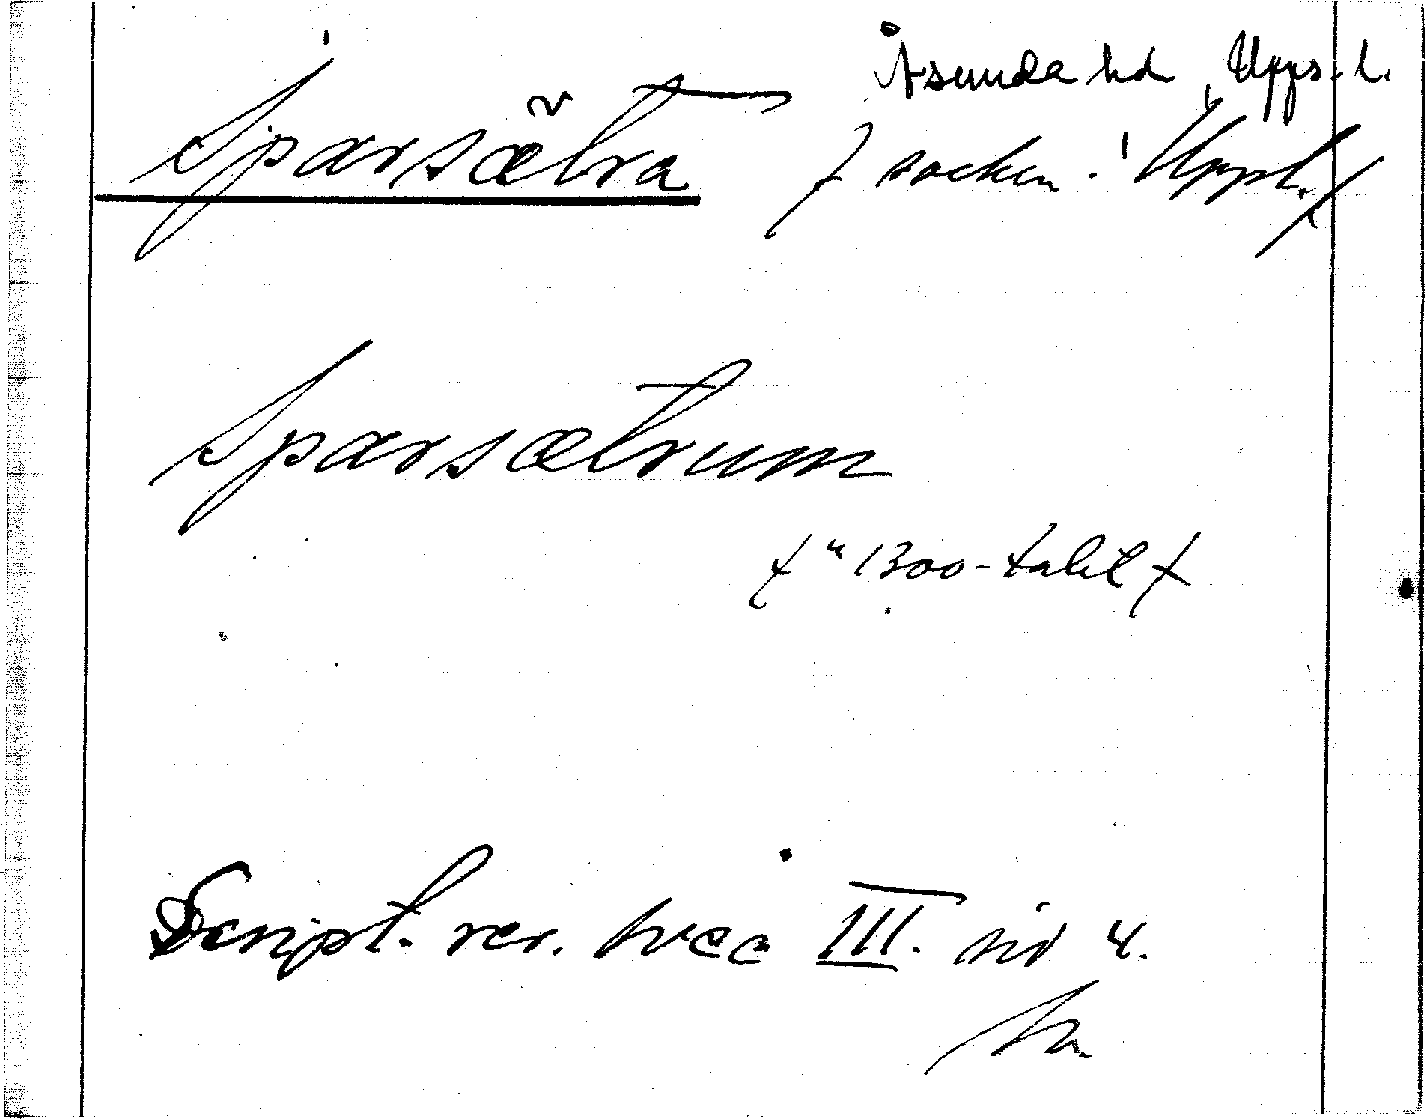 Åsunda hd, Upps. l.
Sparsætra f socken i Uppl. f
Sparsætrum
f "1300-talet f
Script. rer. svec III. sid 4.